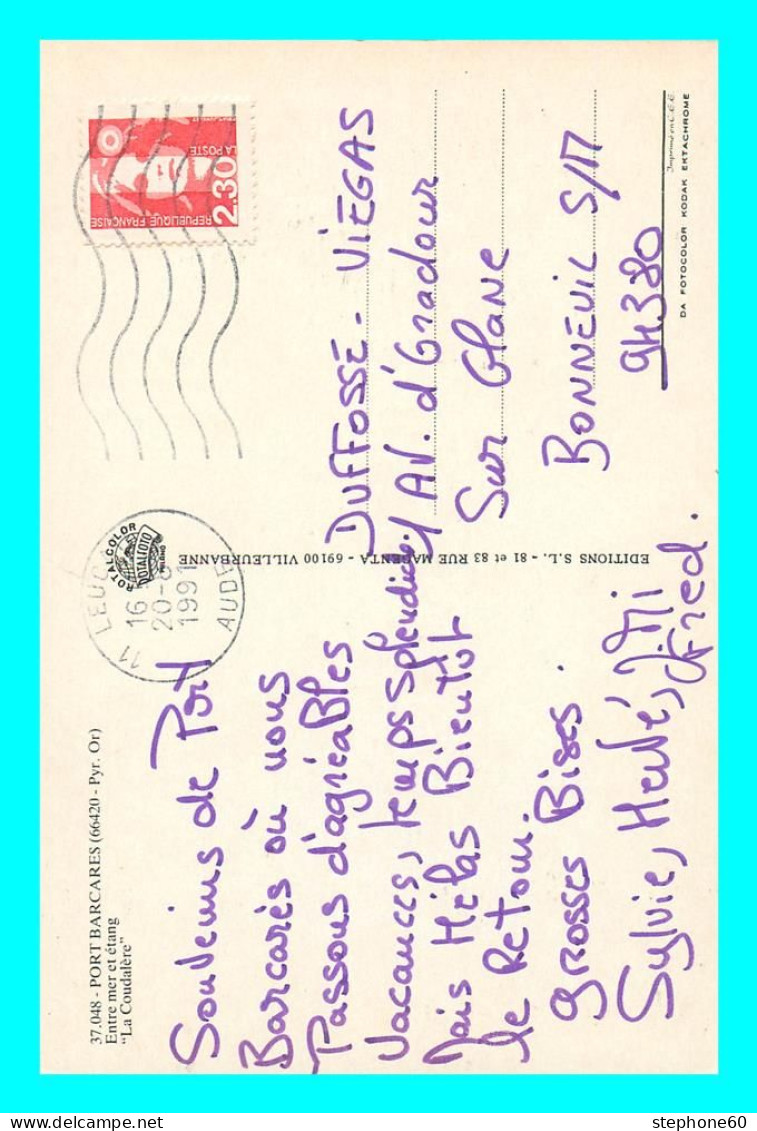 37.048 - PORT BARCARES (66420 - Pyr. Or)
Entre mer et étang
"La Coudalère"
Souvenirs de Port
Barcarès où nous
Passons d'agréables
Vacances, temps splendide.
Mais Hélas Bientôt
le Retour.
grosses Bises.
Sylvie, Hervé, J.Mi
Fred.
ROTALCOLOR
ROTALFOTO
MILANO
11 LEUC
16
20-8
1991
AUDE
EDITIONS S.L. - 81 et 83 RUE MAGENTA - 69100 VILLEURBANNE
LA POSTE
2.30
REPUBLIQUE FRANÇAISE
DUFFOSSE - VIEGAS
AV. d'Oradour
Sur Glane
BONNEUIL S/M
94380
Imprimé en C.E.E.
DA FOTOCOLOR KODAK EKTACHROME
stephone60